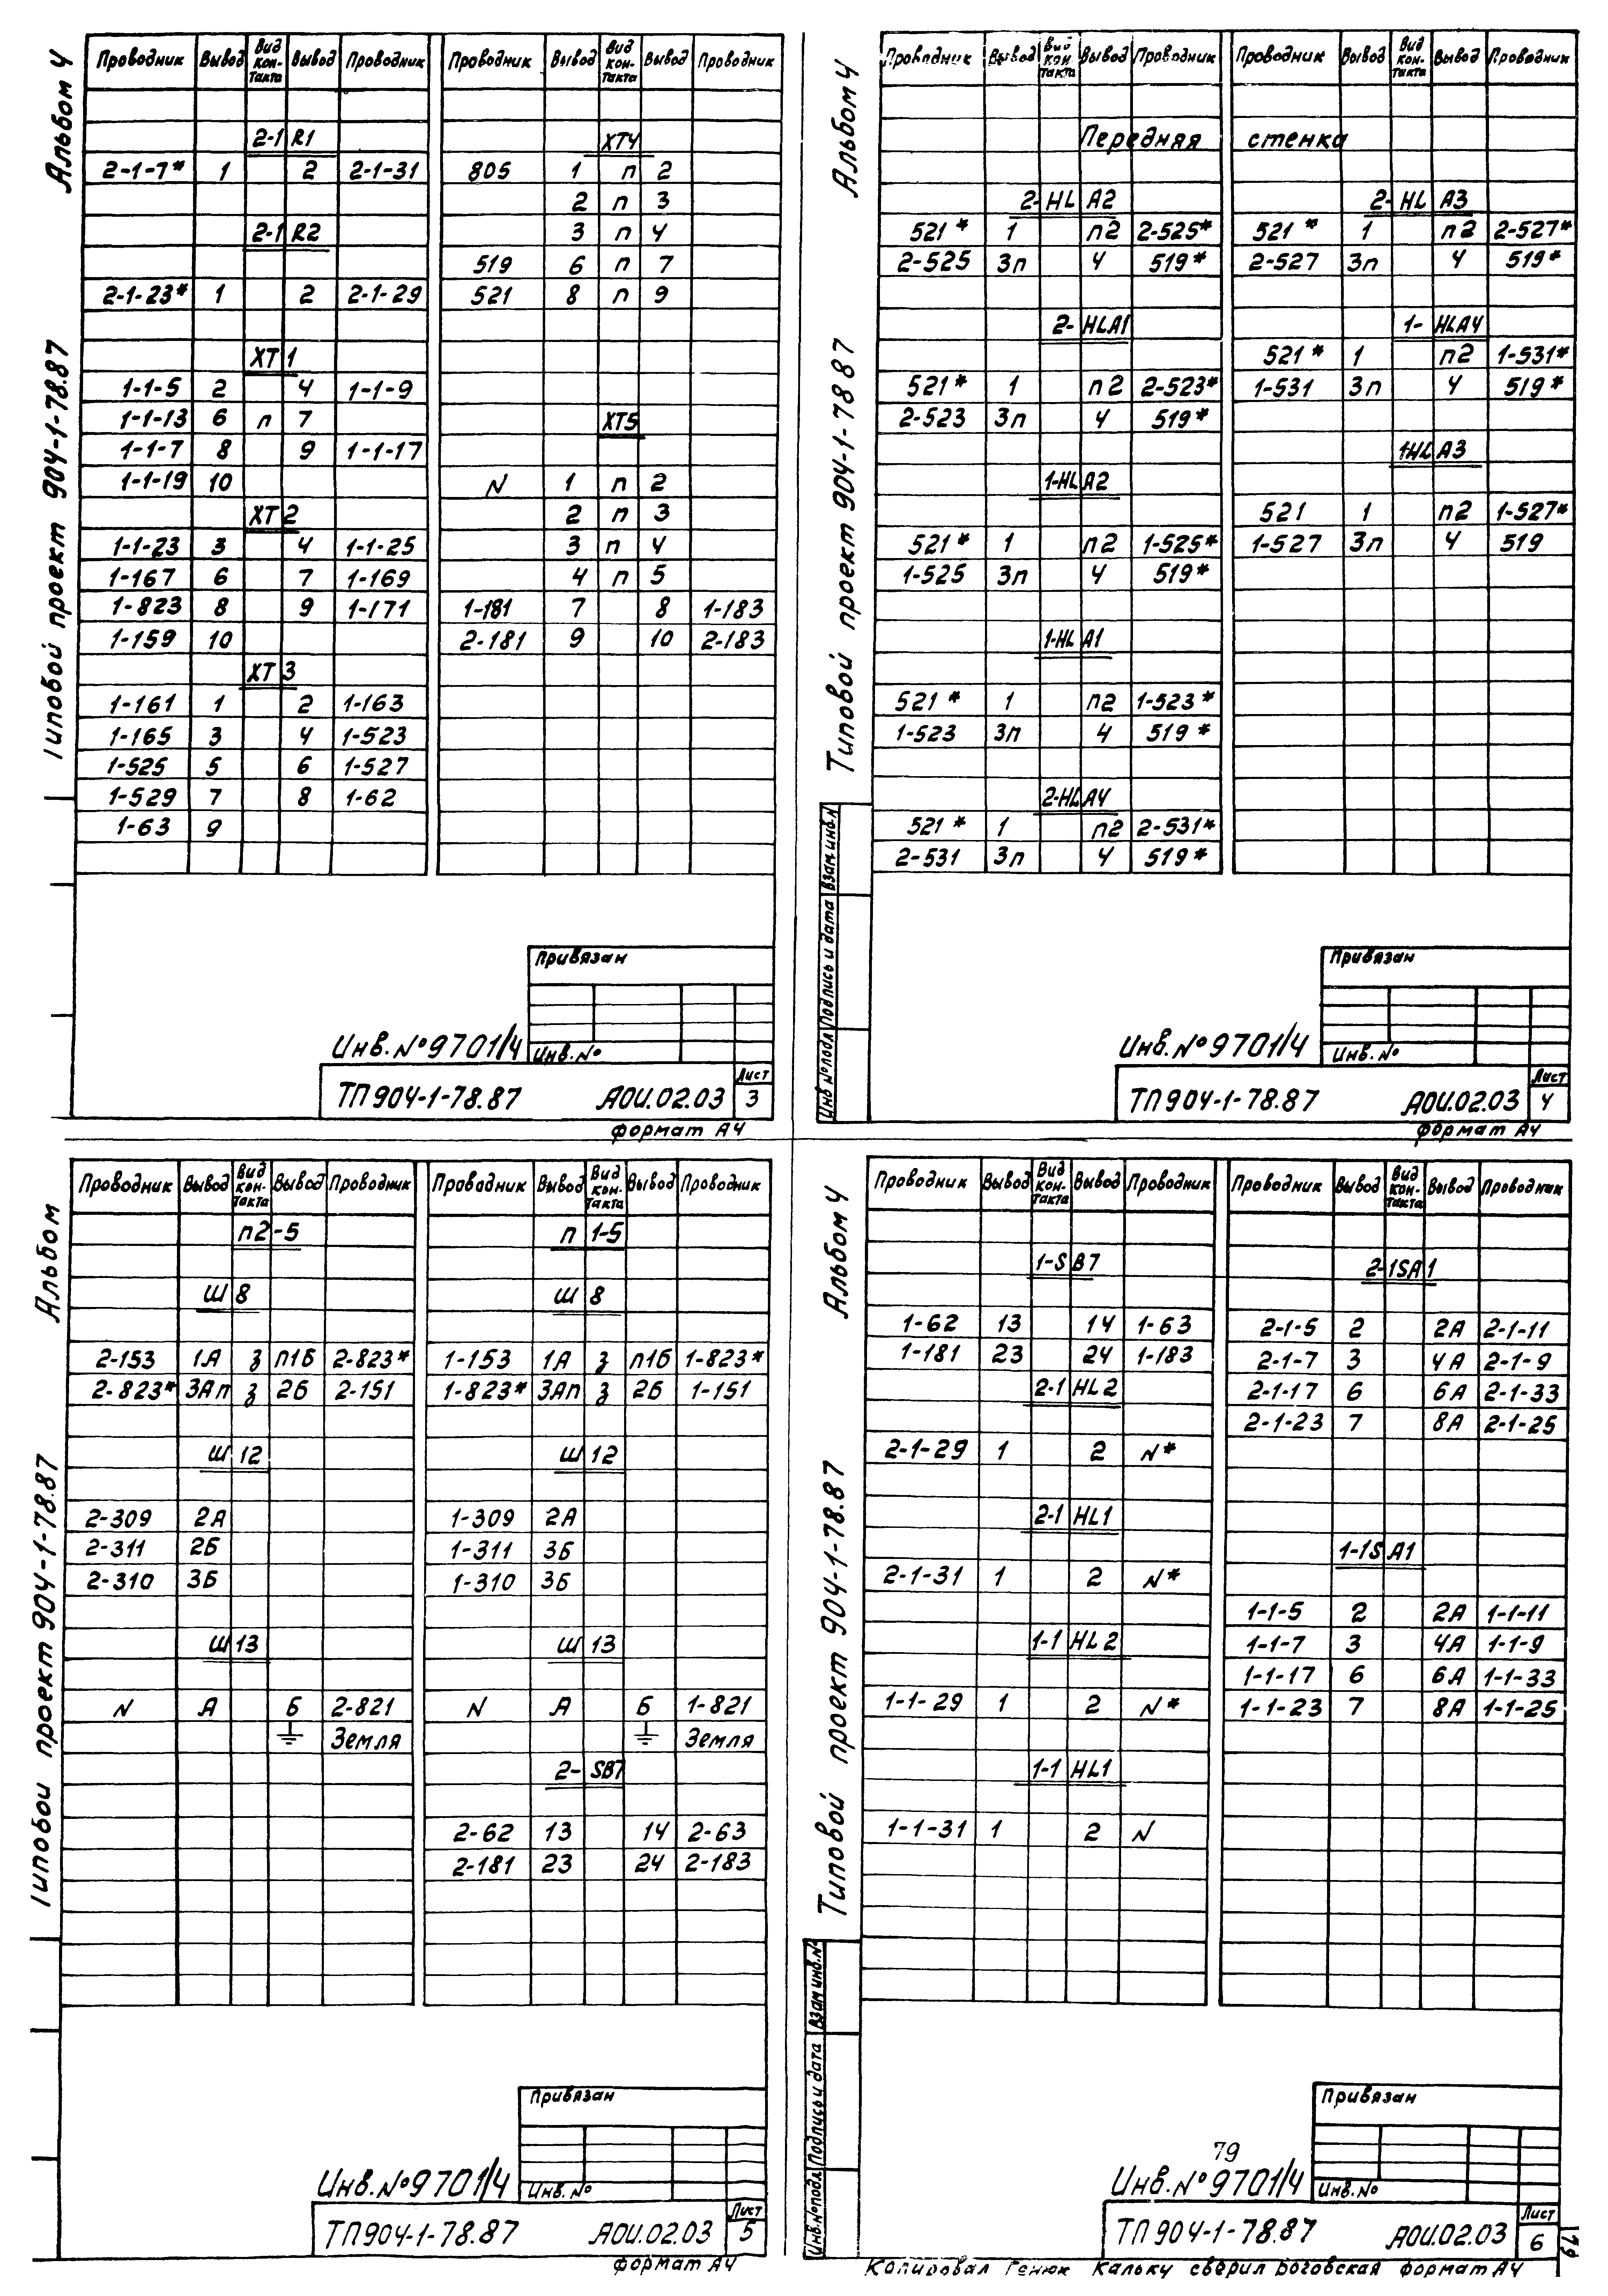 Альбом 4
Типовой проект 904-1-78.87
Проводник Вывод Вид контакта Вывод Проводник Проводник Вывод Вид контакта Вывод Проводник
2-1 R1 XT4
2-1-7* 1 2 2-1-31 805 1 п 2
2 п 3
2-1 R2 3 п 4
519 6 п 7
2-1-23* 1 2 2-1-29 521 8 п 9
XT 1
1-1-5 2 4 1-1-9
1-1-13 6 п 7 XT5
1-1-7 8 9 1-1-17
1-1-19 10 N 1 п 2
XT 2 2 п 3
1-1-23 3 4 1-1-25 3 п 4
1-167 6 7 1-169 4 п 5
1-823 8 9 1-171 1-181 7 8 1-183
1-159 10 2-181 9 10 2-183
XT 3
1-161 1 2 1-163
1-165 3 4 1-523
1-525 5 6 1-527
1-529 7 8 1-62
1-63 9
Привязан
Инв.№9701/4 Инв.№
ТП904-1-78.87 АОИ.02.03 Лист 3
формат А4
Альбом 4
Типовой проект 904-1-78 87
Проводник Вывод Вид контакта Вывод Проводник Проводник Вывод Вид контакта Вывод Проводник
Передняя стенка
2-HL A2 2-HL A3
521* 1 п2 2-525* 521* 1 п2 2-527*
2-525 3п 4 519* 2-527 3п 4 519*
2-HLA1 1-HLA4
521* 1 п2 1-531*
521* 1 п2 2-523* 1-531 3п 4 519*
2-523 3п 4 519*
1HL A3
1-HL A2
521 1 п2 1-527*
521* 1 п2 1-525* 1-527 3п 4 519
1-525 3п 4 519*
1-HL A1
521* 1 п2 1-523*
1-523 3п 4 519*
2-HLA4
521* 1 п2 2-531*
2-531 3п 4 519*
Инв №подл Подпись и дата Взам инв.N
Привязан
Инв.№9701/4 Инв.№
ТП904-1-78.87 АОИ.02.03 Лист 4
формат А4
Альбом
Типовой проект 904-1-78.87
Проводник Вывод Вид контакта Вывод Проводник Проводник Вывод Вид контакта Вывод Проводник
п2-5 п 1-5
Ш 8 Ш 8
2-153 1А з п1б 2-823* 1-153 1А з п1б 1-823*
2-823* 3Ап з 2б 2-151 1-823* 3Ап з 2б 1-151
Ш 12 Ш 12
2-309 2А 1-309 2А
2-311 2Б 1-311 3Б
2-310 3Б 1-310 3Б
Ш 13 Ш 13
N А Б 2-821 N А Б 1-821
⏚ Земля ⏚ Земля
2-SB7
2-62 13 14 2-63
2-181 23 24 2-183
Привязан
Инв.№9701/4 Инв.№
ТП904-1-78.87 АОИ.02.03 Лист 5
формат А4
Альбом 4
Типовой проект 904-1-78.87
Проводник Вывод Вид контакта Вывод Проводник Проводник Вывод Вид контакта Вывод Проводник
1-S B7 2-1SA1
1-62 13 14 1-63 2-1-5 2 2А 2-1-11
1-181 23 24 1-183 2-1-7 3 4А 2-1-9
2-1 HL2 2-1-17 6 6А 2-1-33
2-1-23 7 8А 2-1-25
2-1-29 1 2 N*
2-1 HL1
1-1S A1
2-1-31 1 2 N*
1-1-5 2 2А 1-1-11
1-1 HL2 1-1-7 3 4А 1-1-9
1-1-17 6 6А 1-1-33
1-1-29 1 2 N* 1-1-23 7 8А 1-1-25
1-1 HL1
1-1-31 1 2 N
Инв.№подл Подпись и дата Взам инв.№
Привязан
79
Инв.№9701/4 Инв.№
ТП904-1-78.87 АОИ.02.03 Лист 6
79
Копировал Генюк Кальку сверил Роговская формат А4